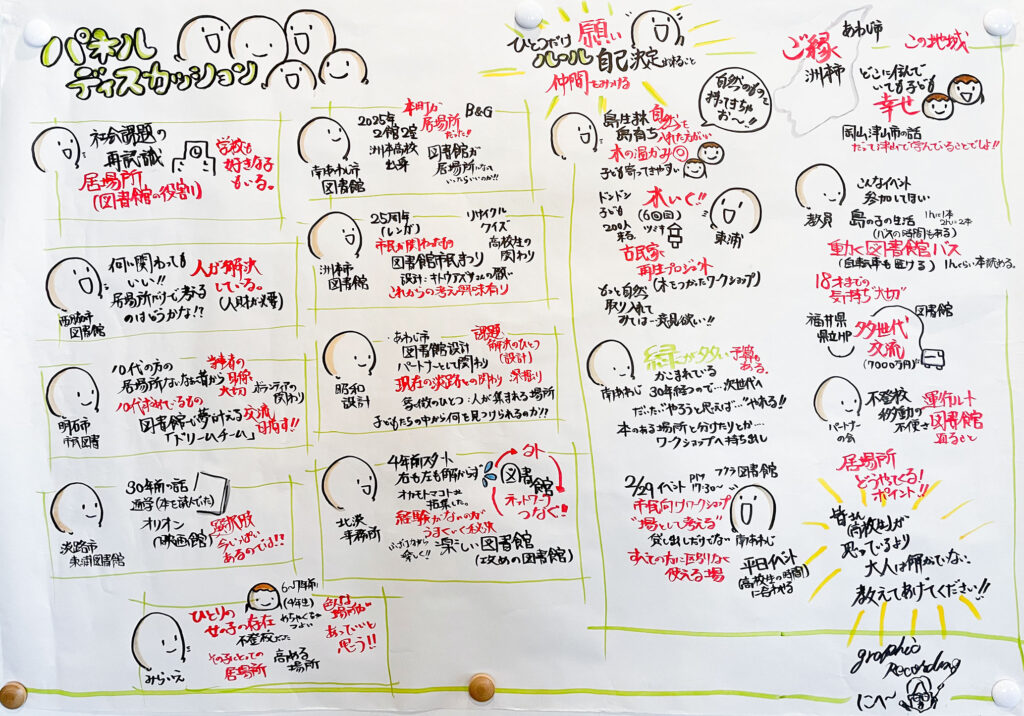 パネル
ディスカッション
社会課題の
再認識
居場所
(図書館の役割)
学校も
好きな子
もいる。
何に関わっても
いい!!
居場所だけで考える
のはどうかな!?
人が解決
している。
(人財が必要)
西脇市
図書館
10代の方の
居場所ない
10代求めているもの
大切
ボランティアの
関わり
図書館で夢が叶える交流
「ドリームチーム」
目指す!!
明石市
市民図書
30年前の話
通学(本を読んでた)
オリオン
(映画館)
選択肢
今いっぱい
あるのでは!?
淡路市
東浦図書館
ひとりの
女の子の存在
不登校だった
6〜7年前
(4年生)
めちゃくちゃ
つよい
その子にとっての
居場所
高める
場所
色んな
場所が
あっていいと
思う!!
みらいえ
2025年
2館2室
洲本高校
出身
本町が
居場所
だった!!
B&G
図書館が
居場所になって
いったらいいのか!?
南あわじ市
図書館
25周年
(レンガ)
リサイクル
クイズ
市民が関わったもの
高校生の
関わり
図書館市民まつり
これからの考え興味有り
洲本市
図書館
あわじ市
図書館設計
パートナーとして関わり
課題
解決のひとつ
(設計)
現在の淡路との関わり
深掘り
各役のひとつ:人が集まれる場所
子どもたちの中から何を見つけられるのか!?
昭和
設計
4年前スタート
右も左も解からず
オカモトマコトは
拒来した
経験がないのが
うまくいく秘訣
楽しい図書館
(攻めの図書館)
ヨト
図書館
ネットワーク
つなぐ!
北淡
事務所
ひとつだけ 願い
ルール 自己決定
仲間をみつける
自然のもの
持ってきちゃ
お〜!!
島生まれ
島育ち
自然
入れた方がいい
木の温かみ
子ども寄ってきやすい
ドンドン
子ども
200人
来る
木いく!!
(6回目)
ツミ木
東浦
古民家
再生プロジェクト
(木をつかったワークショップ)
もっと自然
取り入れて
みては…発見欲しい!!
緑にが多い
予算も
ある。
かこまれている
30年経つので…次世代へ
だいたい"やろうと思えば…"やれる!!
本のある場所と分けたりとか…
ワークショップへ持ち出し
南あわじ
2/29イベント
17:30〜
図書館
市民向けワークショップ
"場として考える"
貸し出しだけでなく
すべての方に区別なく
使える場
南あわじ
平日イベント
(高校生の時間)
に合わせる
あわじ市
ご縁
洲本市
この地域
どこに住んで
いても子ども
幸せ
岡山津山市の話
だって津山で営んでいることでしょ!!
こんなイベント
参加してほしい
島の子の生活
(バスの時間もある)
1hに1本
2hに2本
教員
動く図書館バス
(自転車も置ける)
1hくらい本読める。
18才までの
気持ち"大切"
福井県
県立HP
図書館
多世代
交流
(7000万円)
パートナー
の会
不登校
移動の
不便さ
運行ルート
図書館
迎ること
居場所
どうやってる!
ポイント!!
皆さん
(高校生)が
思っているより
大人は解かってない…
教えてあげてください!!
graphic
Recording
にへ〜